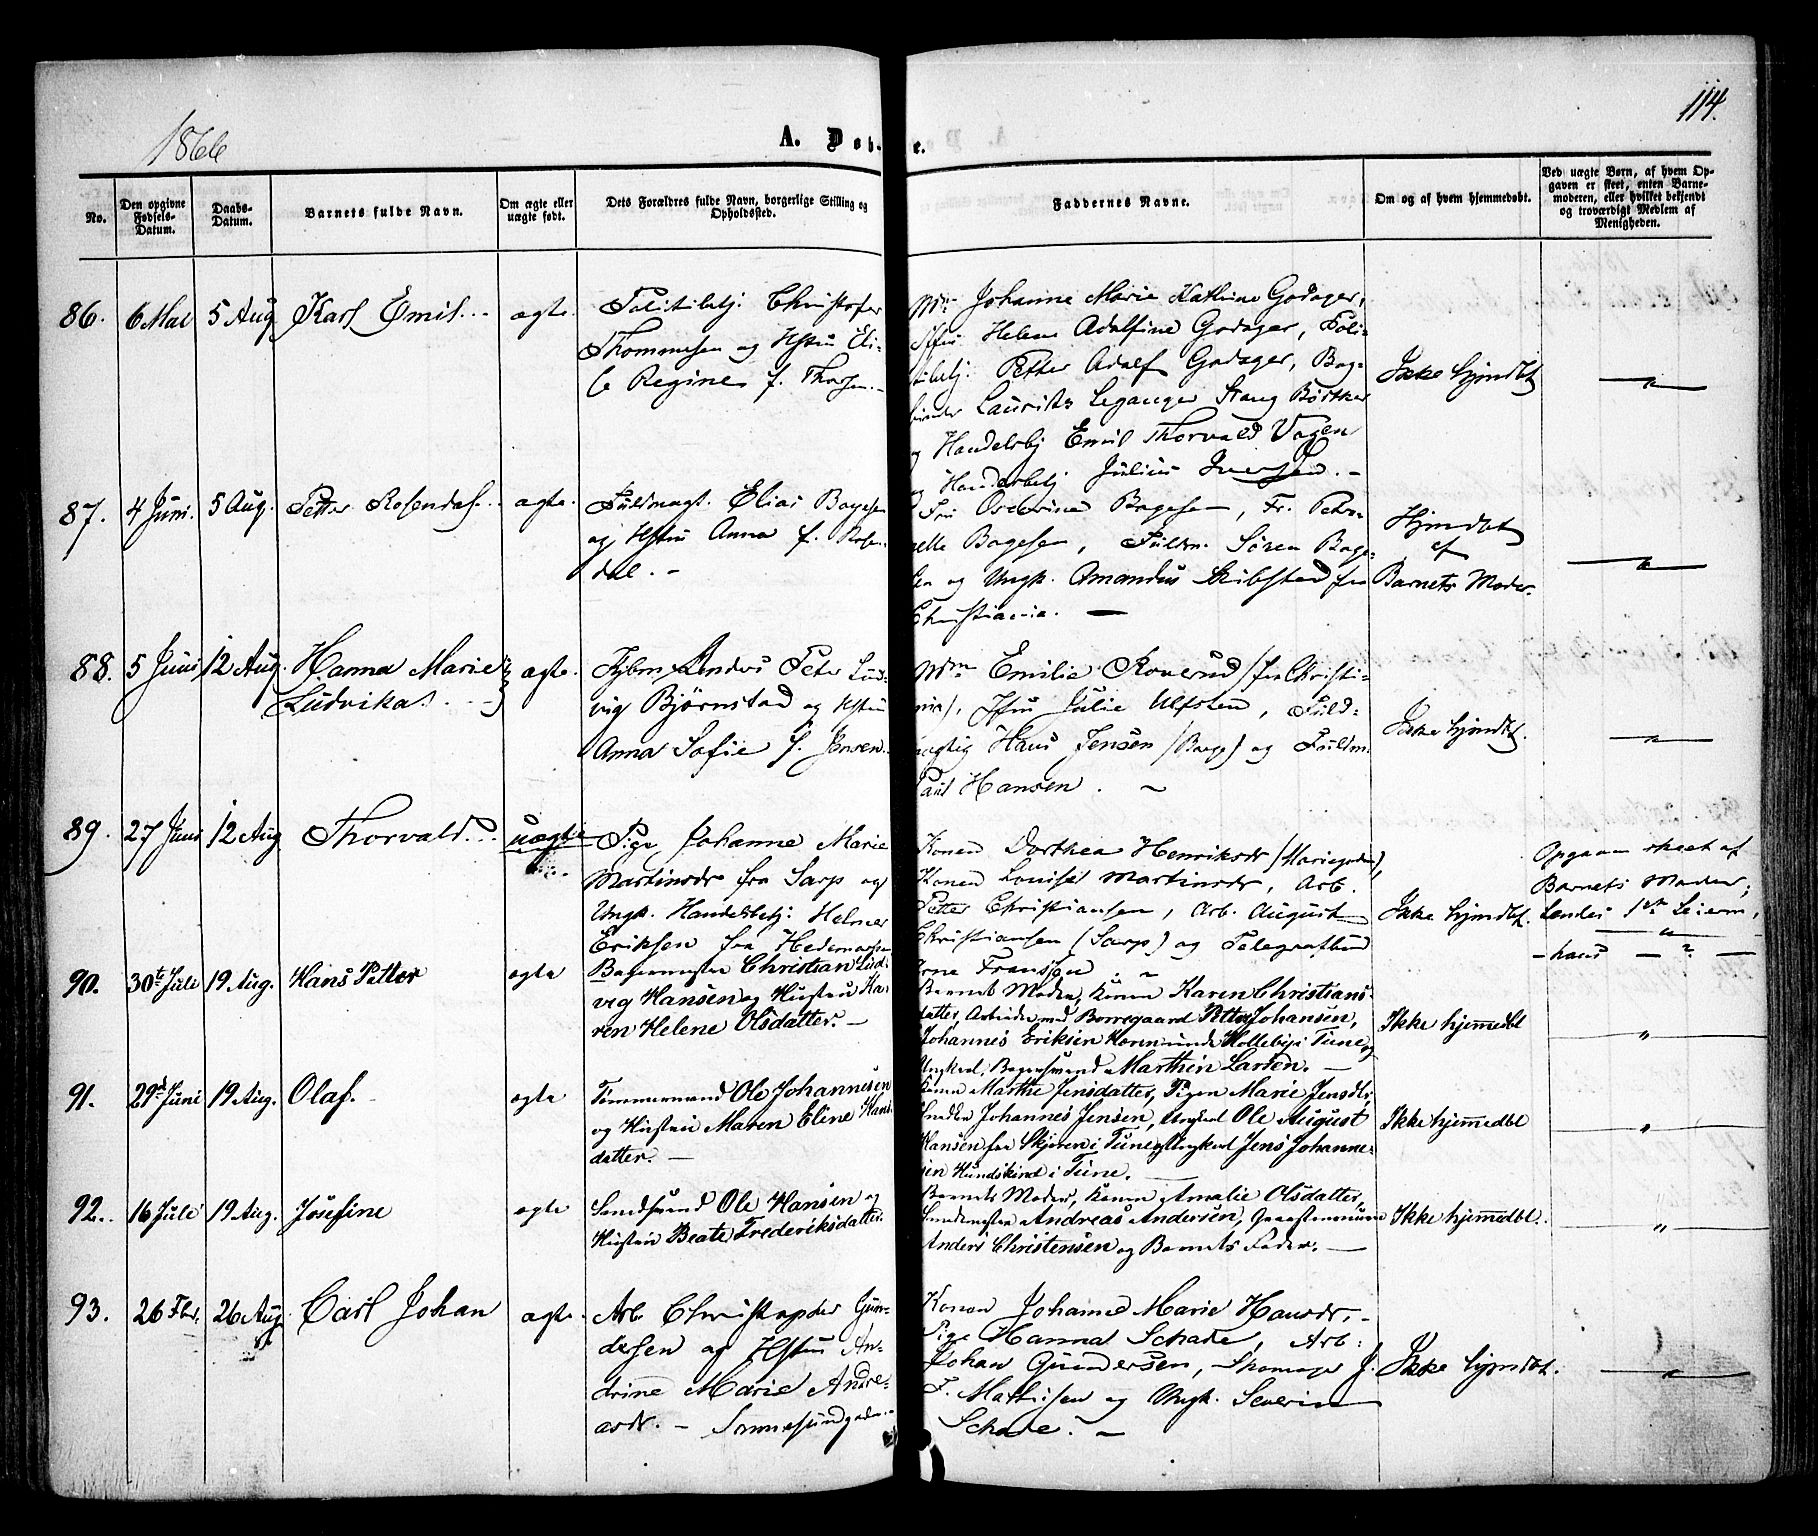 1866
A. Døbte.
114.
No.
Den opgivne Fødsels-Datum.
Daabs-Datum.
Barnets fulde Navn.
Om ægte eller uægte født.
Dets Forældres fulde Navn, borgerlige Stilling og Opholdssted.
Faddernes Navne.
Om og af hvem hjemmedøbt.
Ved uægte Børn, af hvem Opgaven er skeet, enten Barnemoderen, eller hvilket bekjendt og troværdigt Medlem af Menigheden.
86. 6 Mai 5 Aug Karl Emil ægte.
Politibetj. Christofer
Thommesen og Hstru Eli-
se Regine f. Thorsen.
Mm Johanne Marie Kathrine Godager,
Jfru Helene Adolfine Godager, Poli-
tibetj. Petter Adolf Godager, Bog-
binder Laurits Leganger Stang Bøttker
og Handelsbj Emil Thorvald Vogen
og Handelsbetj Julius Iversen. -
Ikke hjmdbt
87. 4 Juni. 5 Aug. Petter Rosendal ægte.
Fuldmægt. Elias Bagesen
og Hstru Anna f. Rosen-
dal. -
Fru Overine Bagesen, Fr. Petro-
nelle Bagesen, Fuldm. Søren Bage-
sen og Ungk. Amandus Skibsted fra
Christiania. -
Hjmdbt
af
Barnets Moder.
88. 5 Juni 12 Aug. Hanna Marie ægte.
Ludvika
Anders Peter Lud-
vig Bjørnstad og Hstru
Anna Sofie f. Jensen.
Mm Emilie Roverud (fra Christi-
ania), Jfru Julie Ulfsten, Fuld-
mægtig Hans Jensen (Borge) og Fuldm.
Paul Hansen. -
Ikke hjmdbt.
89. 27 Juni 12 Aug Thorvald uægte
Pige Johanne Marie
Martinsdr fra Sarp og
Ungk. Handelsbetj. Helmer
Eriksen fra Hedemarken
Konen Dorthea Henriksdr (Mariegaden),
Konen Louise Martinsdr, Arb.
Petter Christiansen, Arb. August
Christiansen (Sarp) og Telegrafbud
Arne Fransen. -
Ikke hjmdbt.
Opgaven skeet af
Barnets Moder;
hendes 1ste Leierm,
- hans - ? -
90. 30te Juli 19 Aug. Hans Petter ægte
Bagermester Christian Lud-
vig Hansen og Hustru Ka-
ren Helene Olsdatter. -
Barnets Moder, Konen Karen Christians-
datter, Arbeider ved Borregaard Petter Johansen,
Johannes Eriksen Hoven under Hollebyi Tune og
Ungkarl, Bagersvend Marthin Larsen. -
Ikke hjemmedbt
91. 29de Juni 19 Aug. Olaf. ægte
Tømmermand Ole Johannesen
og Hustru Maren Eline Hans-
datter. -
Konen Marthe Jensdatter, Pigen Marie Jensdtr,
Snedker Johannes Jensen, Ungkarl Ole August
Hansen fra Skjøren i Tune og Ungkarl Jens Johanne-
sen Hundskind i Tune. -
Ikke hjemmedbt
92. 16 Juli 19 Aug. Josefine ægte
Smedsvend Ole Hansen og
Hustru Beate Frederiksdatter.
Barnets Moder, Konen Amalie Olsdatter,
Smedemester Andreas Andersen,
Anders Christensen og Barnets Fader. -
Ikke hjemmedbt.
93. 26 Fbr. 26 Aug. Carl Johan ægte.
Arb. Christopher Gun-
dersen og Hstru An-
drine Marie Andre-
asdr. -
Konen Johanne Marie Hansdr, -
Pige Hanna Schade, Arb.
Johan Gundersen, Skomager J.
F. Mathisen og Ungk. Severin
Schade. -
Ikke hjmdbt.